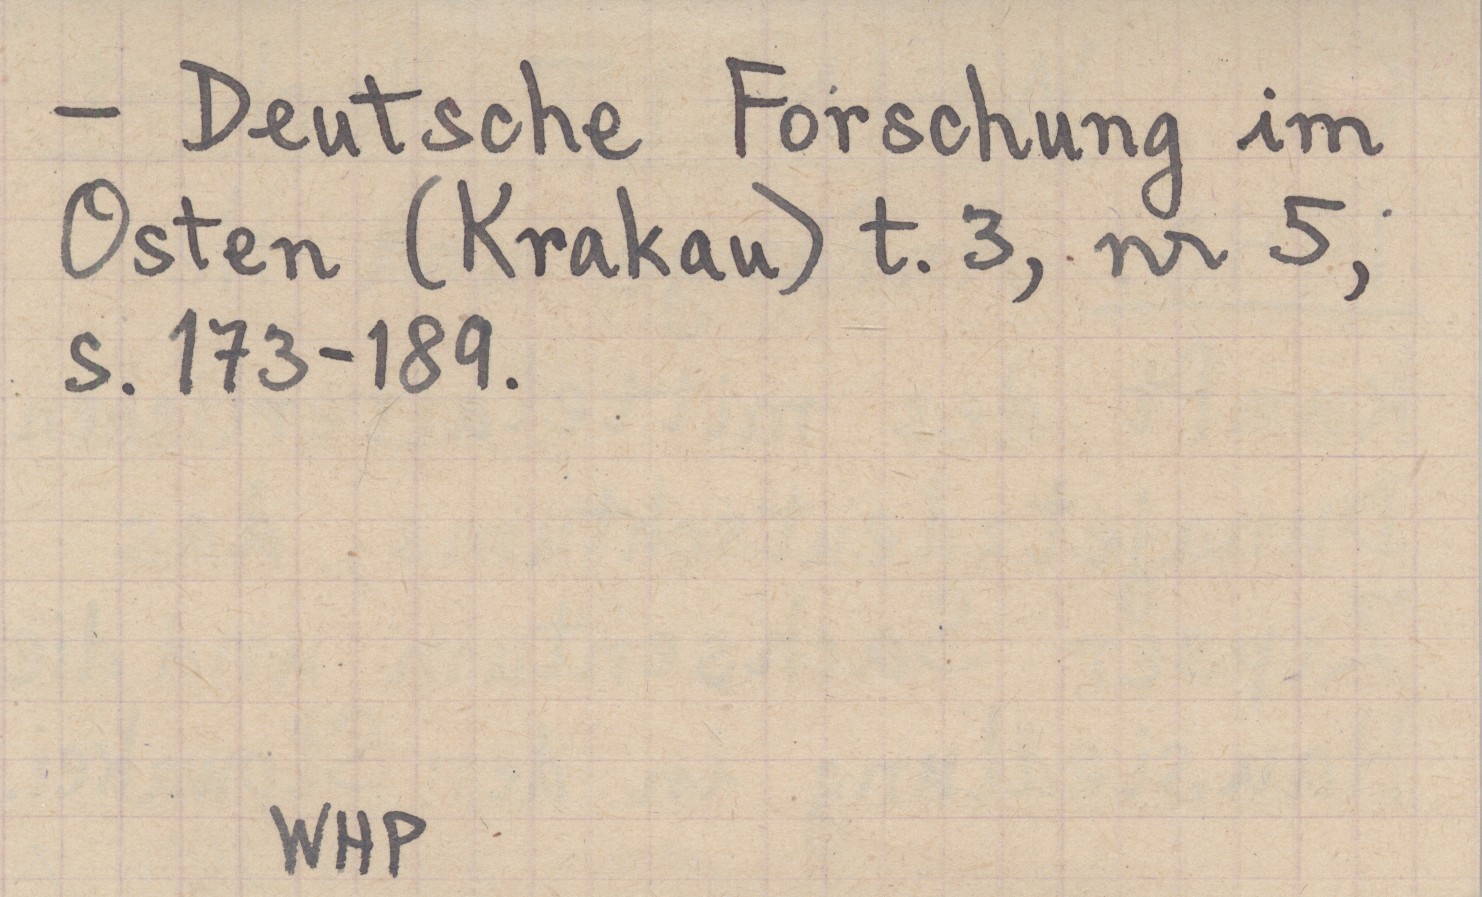 – Deutsche Forschung im
Osten (Krakau) t. 3, nr 5,
s. 173-189.
WHP